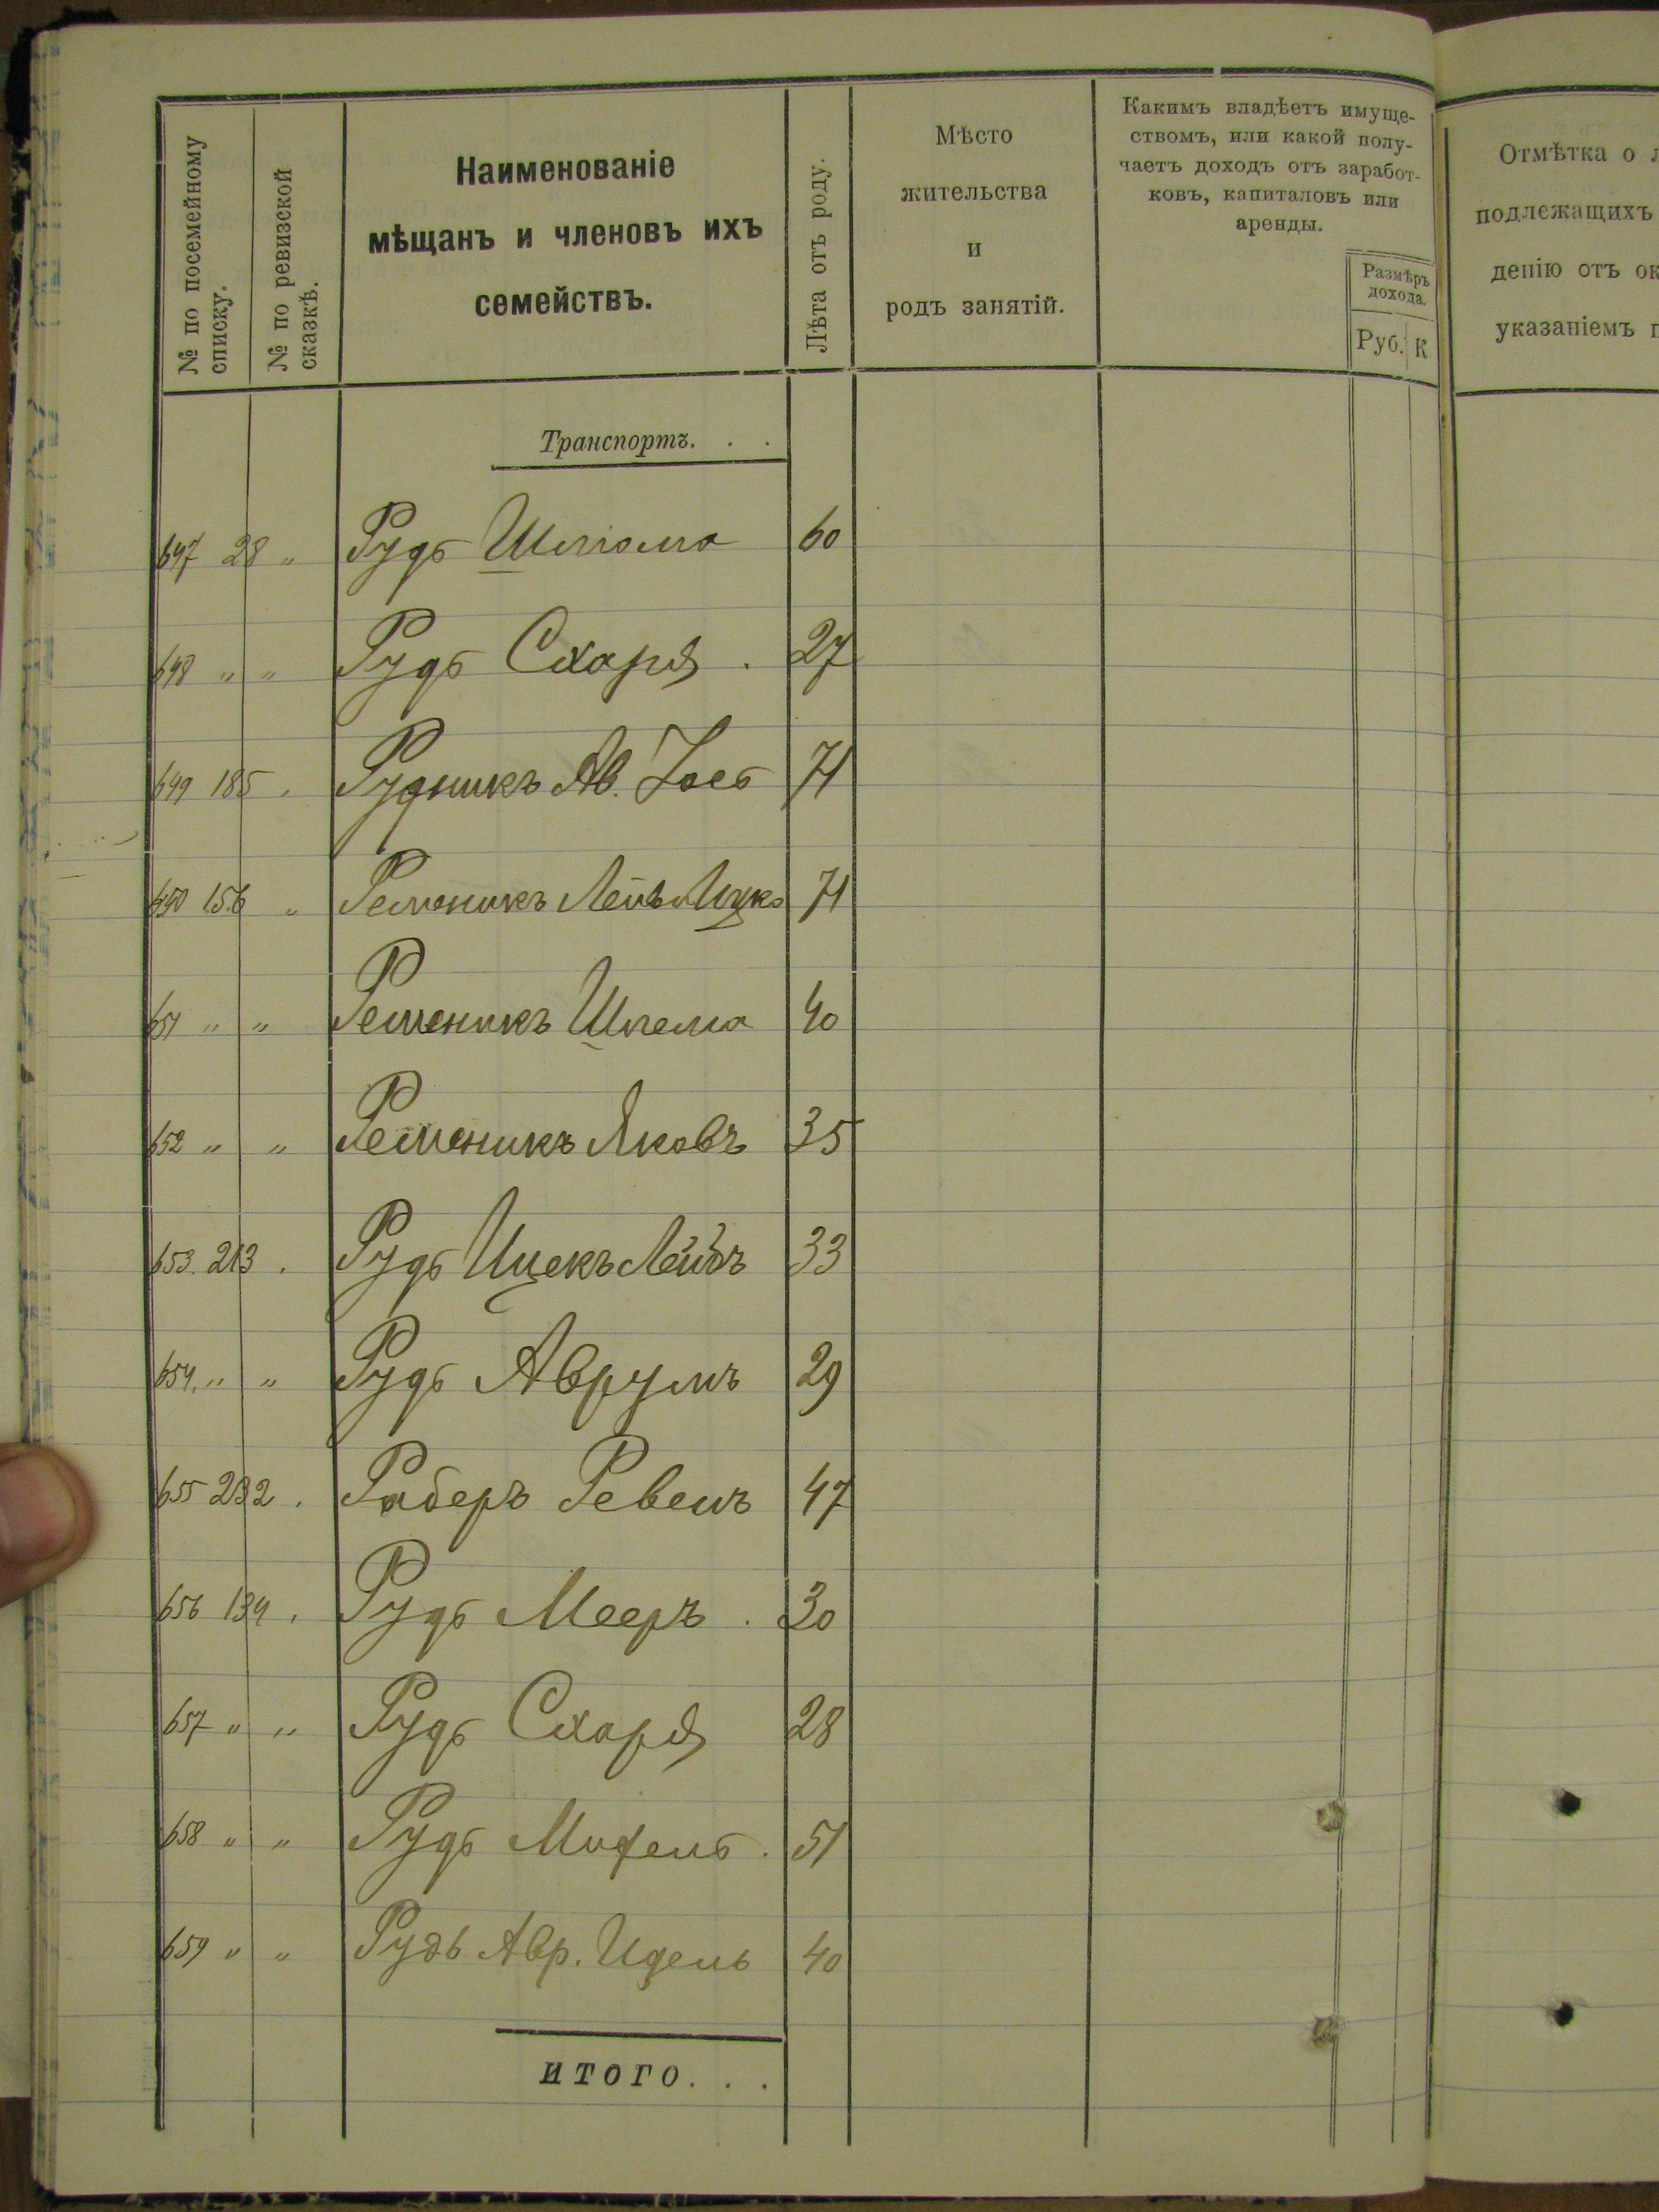 № по посемейному
списку.
№ по ревизской
сказкѣ.
Наименованіе
мѣщанъ и членовъ ихъ
семействъ.
Лѣта отъ роду.
Мѣсто
жительства
и
родъ занятій.
Какимъ владѣетъ имуще-
ствомъ, или какой полу-
чаетъ доходъ отъ заработ-
ковъ, капиталовъ или
аренды.
Размѣръ
дохода.
Руб. К
Отмѣтка о
подлежащихъ
денію отъ ок
указаніемъ п
Транспортъ. . .
647 28 " Рудь Шлиома 60
648 " " Рудь Схарія . 27
649 185 . Рудникъ Ав. Іось 71
650 156 " Ременикъ Лейб Ицко 71
651 " " Ременикъ Шлема 40
652 " " Ременикъ Яковъ 35
653. 213 . Рудь Ицекъ Лейбъ 33
654. " " Рудь Аврумъ 29
655 232 . Раберъ Ревенъ 47
656 134 . Рудь Мееръ . 30
657 " " Рудь Схарія 28
658 " " Рудь Михель . 51
659 " " Рудь Авр. Идель 40
ИТОГО. . .